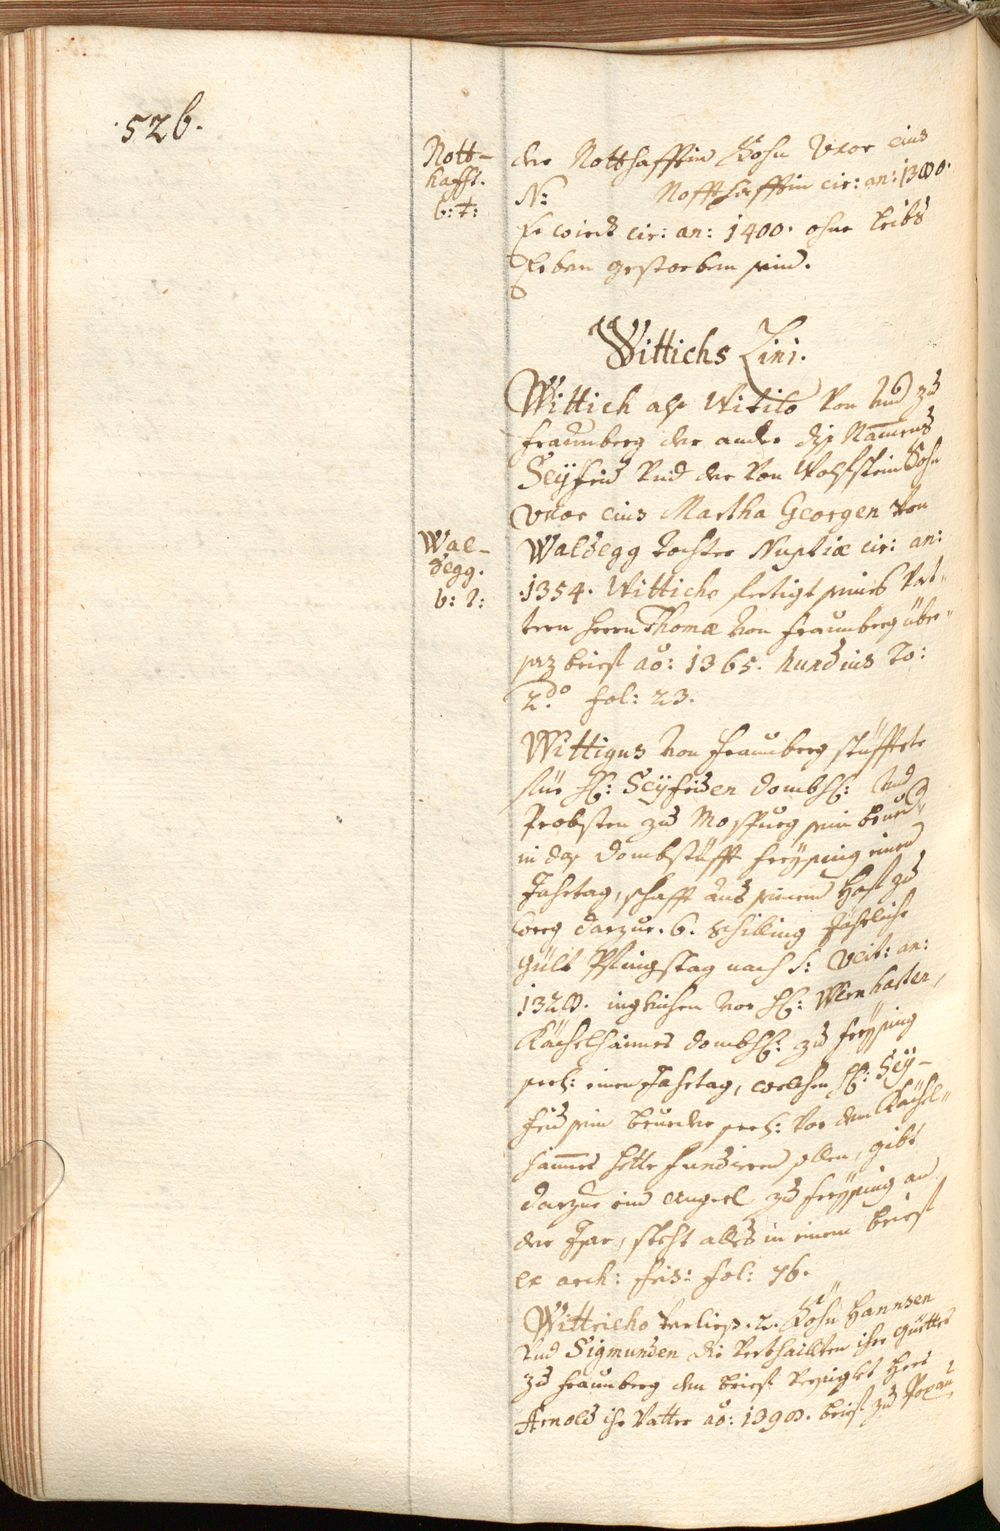 ·526·
Nott-
hafft.
b: t:
der Notthafftin Sohn Uxor eius
N: Notthafftin cir: an: 1380.
Er wirdt cir: an: 1400. ohne Leibs
Erben gestorben sein.
Wittichs Lini.
Wittich als Witilo von und zu
Fraunberg der ander diß Namens
Seyfrid und der von Wolfstein Sohn
Uxor eius Martha Georgen von
Wal-
degg.
b: 2:
Waldegg Tochter Nuptiæ cir: an:
1354. Witticho fertigt seines Vat-
tern Herrn Thomæ von Fraunberg über-
gab brief aõ: 1365. Hundius To:
2do. fol: 23.
Wittigus von Fraunberg stüfftete
für H: Seyfriden Dombh: und
Probsten zu Mospurg sein bruder
in das Dombstüfft Freysing einen
Jahrtag, schafft aus seinem Hof zu
berg darzue. 6. schilling Jährliche
Gült Pfingstag nach S: Veit: an:
1380. ingleichen vor H:
Dombh: zu Freysing
seel: einen Jahrtag, welchen H: Sey-
frid sein brueder seel: vor dem
hette fundieren sollen, gibt
darzue ein Angerl zu Freysing an
der Isar, steht alles in einem brief
ex arch: fris: fol: 76.
Witticho verließ. 2. Söhn Hannsen
und Sigmunden die verthailten ihre Güetter
zu Fraunberg den brief besiglet Herr
Arnold ihr Vatter aõ: 1390. brief zu